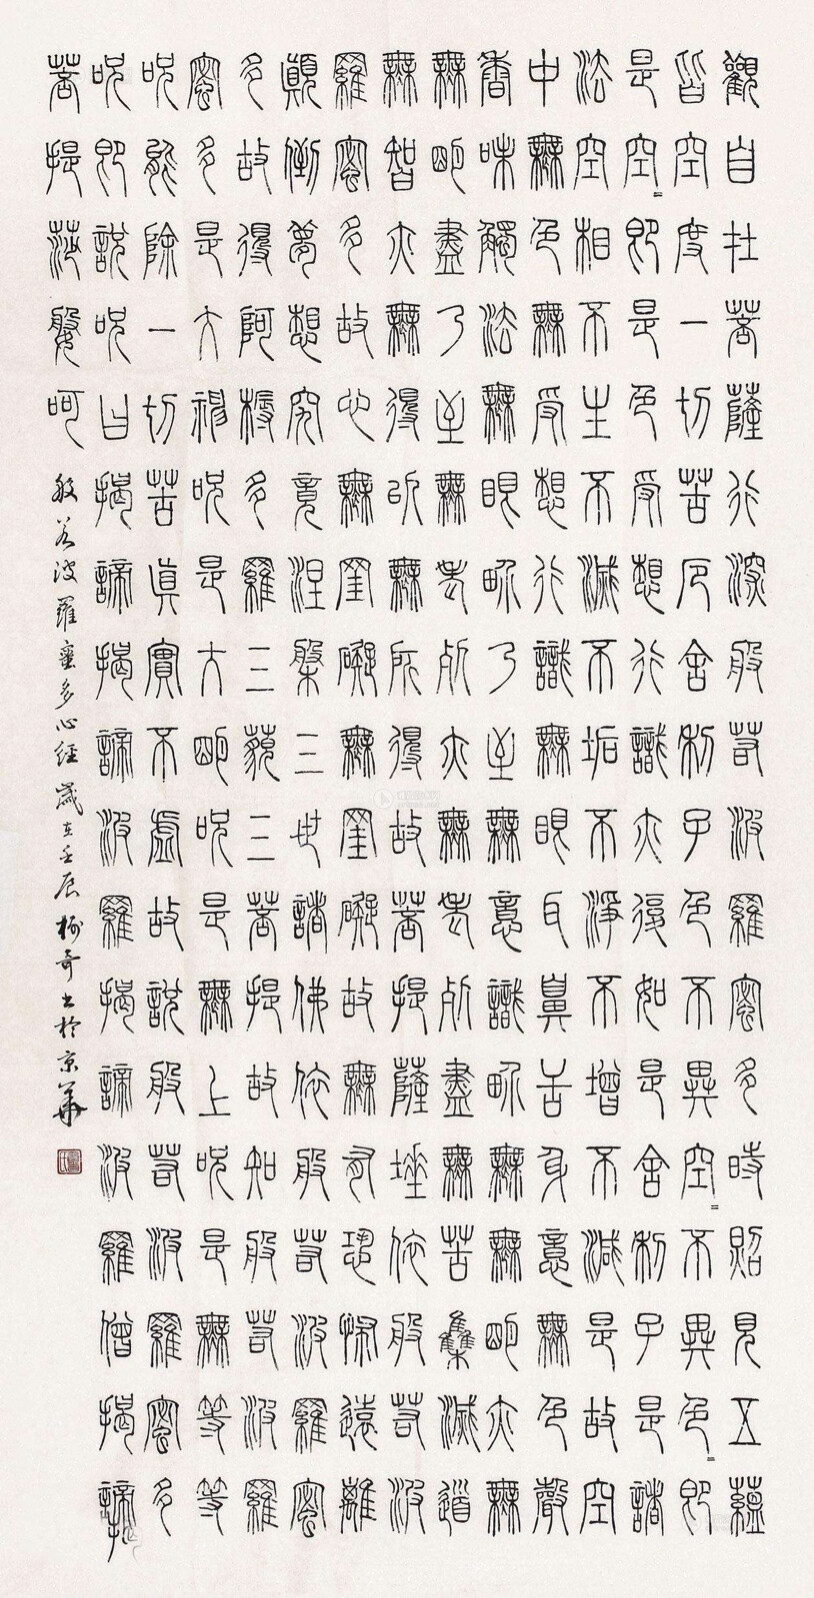 觀自在菩薩行深般若波羅蜜多時照見五蘊
皆空度一切苦厄舍利子色不異空〻不異色〻即
是空〻即是色受想行識亦復如是舍利子是諸
法空相不生不滅不垢不淨不增不減是故空
中無色無受想行識無眼耳鼻舌身意無色聲
香味觸法無眼界乃至無意識界無無明亦無
無明盡乃至無老死亦無老死盡無苦集滅道
無智亦無得以無所得故菩提薩埵依般若波
羅蜜多故心無罣礙無罣礙故無有恐怖遠離
顛倒夢想究竟涅槃三世諸佛依般若波羅蜜
多故得阿耨多羅三藐三菩提故知般若波羅
蜜多是大神咒是大明咒是無上咒是無等等
咒能除一切苦真實不虛故說般若波羅蜜多
咒即說咒曰揭諦揭諦波羅揭諦波羅僧揭諦
菩提莎婆呵
般若波羅蜜多心經歲在壬辰奇書於京華